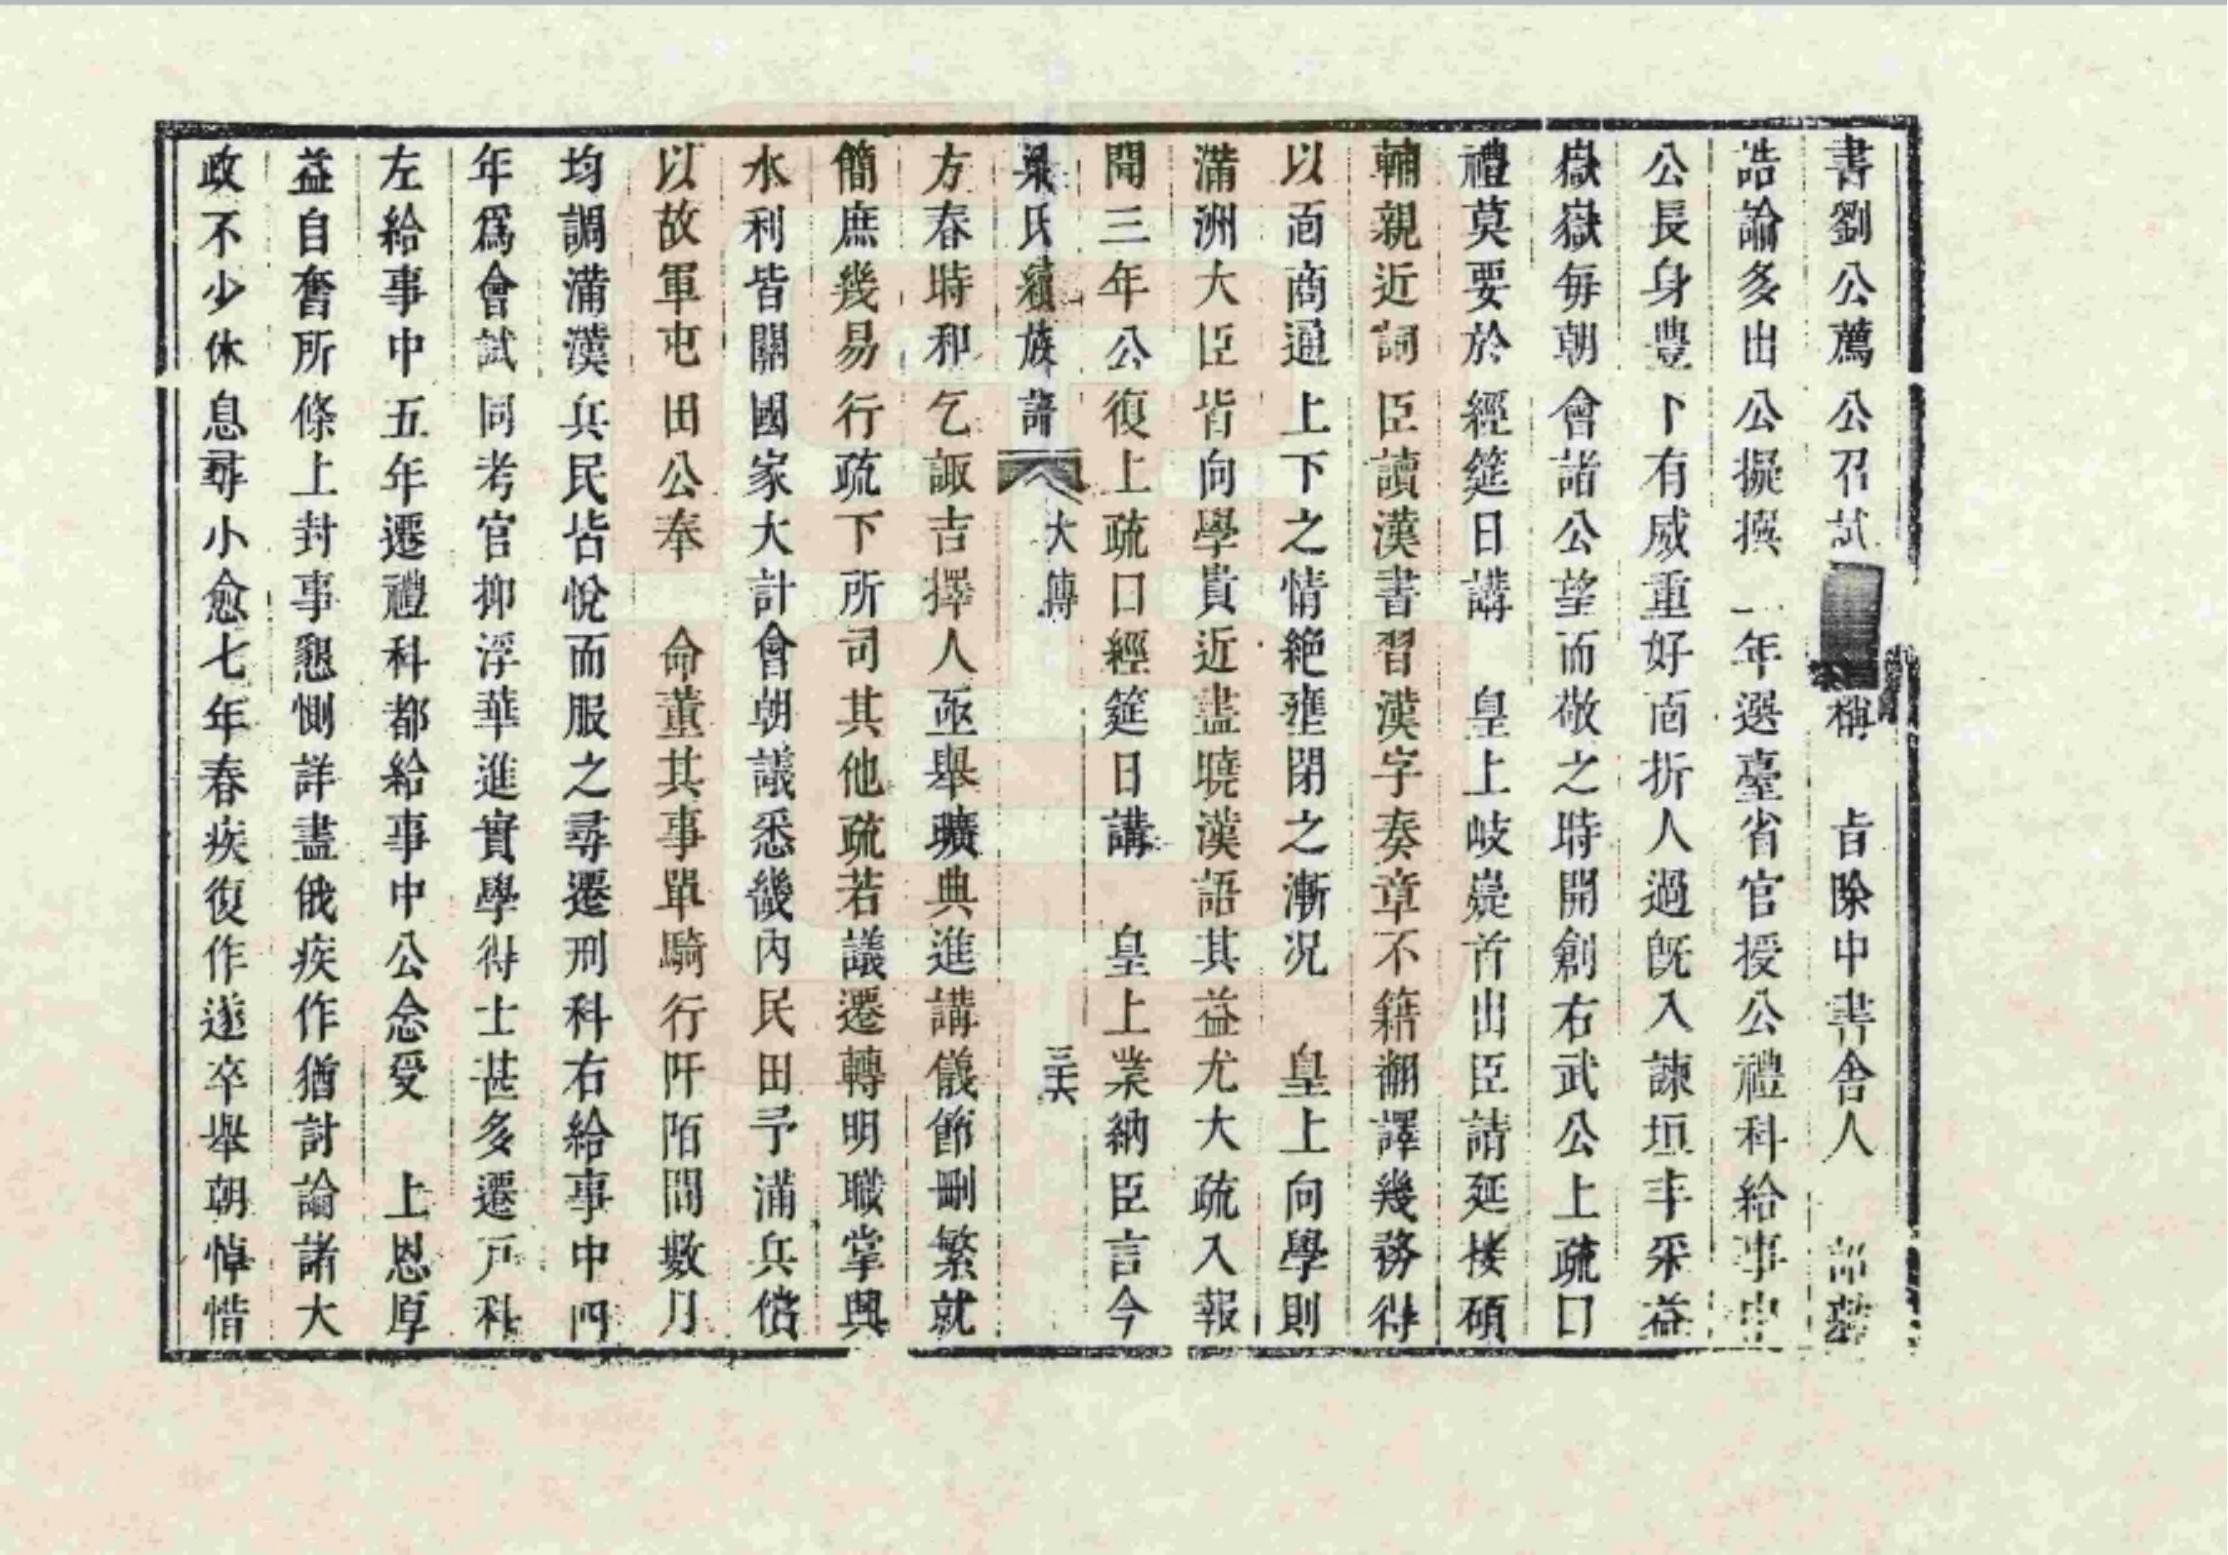 書劉公薦公召試稱　旨除中書舍人　詔誥
誥諭多出公擬撰一年選臺省官授公禮科給事中
公長身豐下有威重好面折人過旣入諫垣丰采益
嶽嶽每朝會諸公望而敬之時開創右武公上疏曰
禮莫要於經筵日講　皇上岐嶷首出臣請延接碩
輔親近詞臣讀漢書習漢字奏章不籍翻譯幾務得
以面商通上下之情絶壅閉之漸况　皇上向學則
滿洲大臣皆向學貴近盡曉漢語其益尤大疏入報
聞三年公復上疏曰經筵日講　皇上業納臣言今
梁氏續族譜　大傳　三六
方春時和乞諏吉擇人亟舉曠典進講儀節刪繁就
簡庶幾易行疏下所司其他疏若議遷轉明職掌興
水利皆關國家大計會朝議悉畿內民田予滿兵償
以故軍屯田公奉　命董其事單騎行阡陌間數月
均調滿漢兵民皆悅而服之尋遷刑科右給事中四
年爲會試同考官抑浮華進實學得士甚多遷戸科
左給事中五年遷禮科都給事中公念受　上恩厚
益自奮所條上封事懇惻詳盡俄疾作猶討論諸大
政不少休息尋小愈七年春疾復作遂卒舉朝悼惜